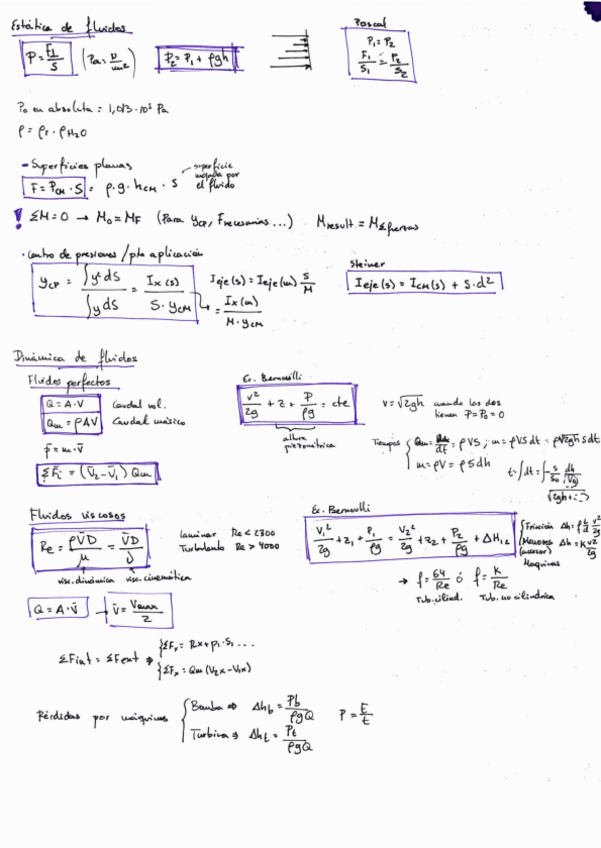 Estática de fluidos
Pascal
P = F⊥/S (Pa = N/m²) P₂ = P₁ + ρgh
P₁ = P₂
F₁/S₁ = F₂/S₂
P₀ en absoluta = 1,013·10⁵ Pa
ρ = ρr · ρH₂O
- Superficies planas
F = P_CM · S = ρ · g · h_CM · S
superficie mojada por el fluido
! ΣM = 0 → M₀ = M_F (Para y_CP, F necesarias ...) M result = M
· Centro de presiones / pto aplicación
y_CP = ∫y²dS / ∫ydS = Ix(s) / S · y_CM
Ieje(s) = Ieje(m) S/M
= Ix(m) / M · y_CM
Steiner
Ieje(s) = I_CM(s) + S·d²
Dinámica de fluidos
Fluidos perfectos
Q = A·V Caudal vol.
Qm = ρAV Caudal másico
p̄ = m·v̄
ΣF̄i = (v̄₂ - v̄₁) Qm
Ec. Bernouilli
v²/2g + z + P/ρg = cte
altura piezométrica
v = √2gh cuando los dos tienen P = P₀ = 0
Tiempos
= ρVS ; m = ρVSdt = ρ√2gh Sdt
m = ρV = ρSdh
Fluidos viscosos
Re = ρV̄D/μ = V̄D/ν
visc. dinámica visc. cinemática
Laminar Re < 2300
Turbulento Re > 4000
Ec. Bernoulli
V₁²/2g + z₁ + P₁/ρg = V₂²/2g + z₂ + P₂/ρg + ΔH₁₂
Fricción Δh = f
Menores Δh = K v²/2g
Maquinas
→ f = 64/Re ó f = K/Re
Tub. cilind. Tub. no cilindrica
Q = A·V̄ → V̄ = Vmax/2
ΣFint = ΣFext ⇒
= Rx + p₁·S₁ ...
ΣFx = Qm (V₂x - V₁x)
Pérdidas por máquinas
Bomba ⇒ Δh_b = P_b/ρgQ
Turbina ⇒ Δh_t = P_t/ρgQ
P = E/t